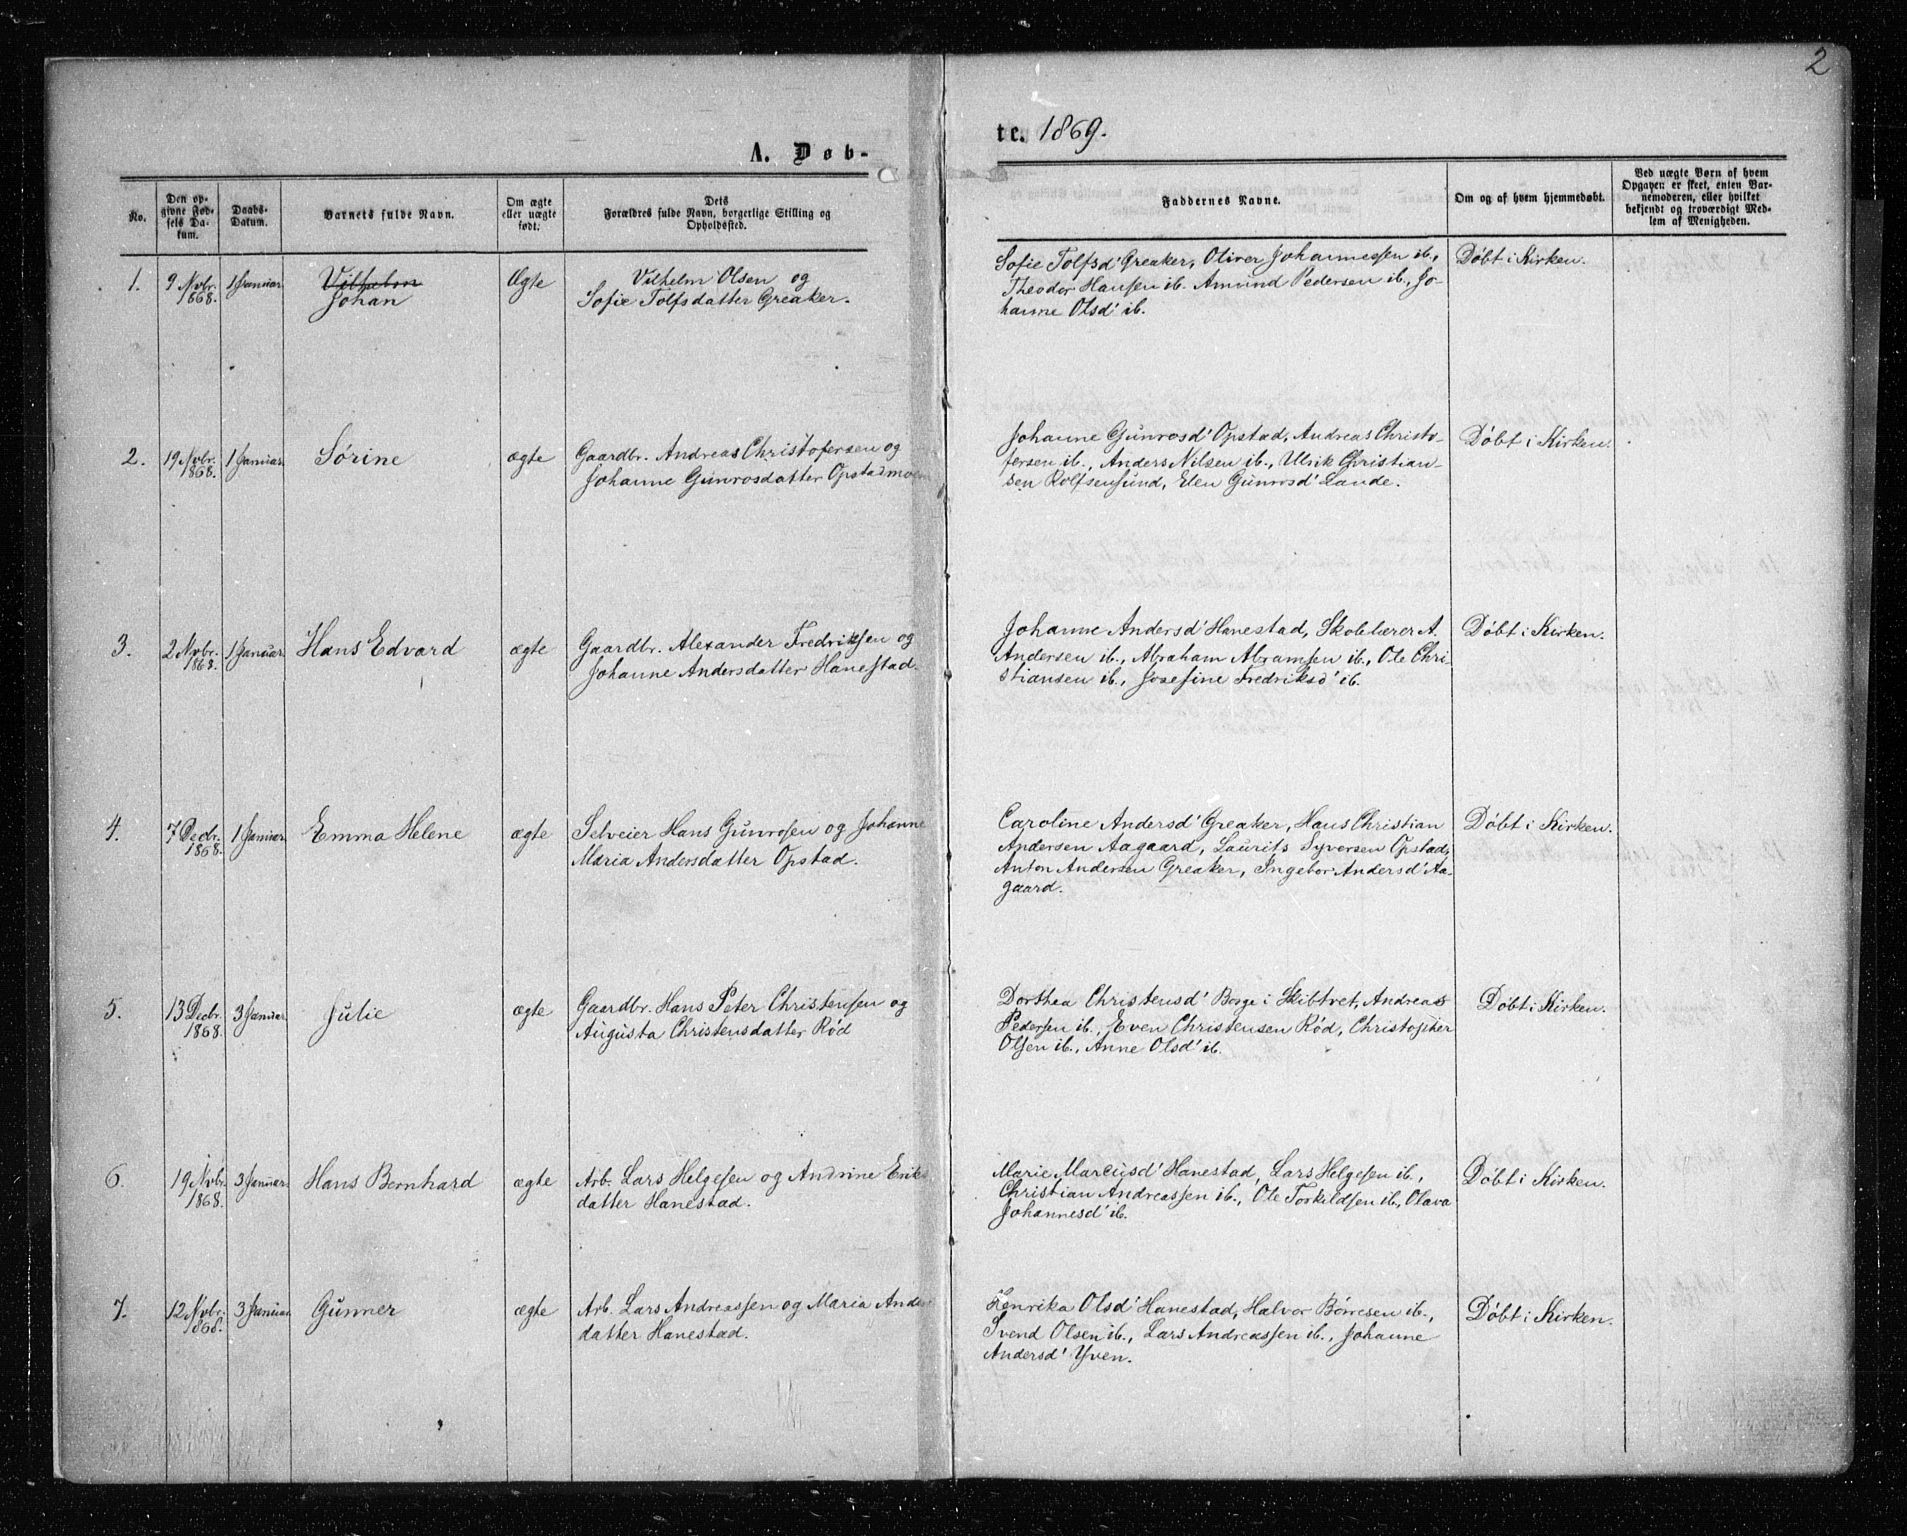 2
A. Døb-
te. 1869.
No.
Den op-
givne Fød-
sels Da-
tum.
Daabs-
Datum.
Barnets fulde Navn.
Om ægte
eller uægte
født.
Dets
Forældres fulde Navn, borgerlige Stilling og
Opholdssted.
Faddernes Navne.
Om og af hvem hjemmedøbt.
Ved uægte Børn af hvem
Opgaven er skeet, enten Bar-
nemoderen, eller hvilket
bekjendt og troværdigt Med-
lem af Menigheden.
1.
9 Novbr.
1868.
1 Januar
Vilhelm
Johan
Ægte
Vilhelm Olsen og
Sofie Tolfsdatter Greaker.
Sofie Tolfsd' Greaker, Oliver Johannessen ib.,
Theodor Hansen ib. Amund Pedersen ib., Jo-
hanne Olsd' ib.
Døbt i Kirken.
2.
19 Novbr.
1868.
1 Januar.
Sørine
ægte
Gaardbr. Andreas Christofersen og
Johanne Gunrosdatter Opstadmoen
Johanne Gunrosd' Opstad, Andreas Christo-
fersen ib., Anders Nilsen ib., Ulrik Christian-
sen Rolfsensund, Elen Gunrosd' Lande.
Døbt i Kirken.
3.
2 Novbr.
1868.
1 Januar.
Hans Edvard
ægte
Gaardbr. Alexander Fredriksen og
Johanne Andersdatter Hanestad.
Johanne Andersd' Hanestad, Skolelærer A.
Andersen ib., Abraham Abramsen ib., Ole Chri-
stiansen ib., Josefine Fredriksd' ib.
Døbt i Kirken.
4.
7 Decbr.
1868.
1 Januar.
Emma Helene
ægte
Selveier Hans Gunrosen og Johanne
Maria Andersdatter Opstad.
Caroline Andersd' Greaker, Hans Christian
Andersen Aagaard, Laurits Syversen Opstad,
Anton Andersen Greaker, Ingebor Andersd' Aa-
gaard.
Døbt i Kirken.
5.
13 Decbr.
1868.
3 Januar.
Julie
ægte
Gaardbr. Hans Peter Christensen og
Augusta Christensdatter Rød
Dorthea Christensd' Borge i Skibtvet, Andreas
Pedersen ib., Even Christensen Rød, Christopher
Olsen ib., Anne Olsd' ib.
Døbt i Kirken.
6.
19 Novbr.
1868.
3 Januar.
Hans Bernhard
ægte
Arb. Lars Helgesen og Andrine Eriks
datter Hanestad.
Marie Marcusd' Hanestad, Lars Helgesen ib.,
Christian Andreassen ib., Ole Torkildsen ib., Olava
Johannesd' ib.
Døbt i Kirken.
7.
12 Novbr.
1868.
3 Januar.
Gunner
ægte
Arb. Lars Andreassen og Maria Anders
datter Hanestad.
Henrika Olsd' Hanestad, Halvor Børresen ib.,
Svend Olsen ib., Lars Andreassen ib., Johanne
Andersd' Yven.
Døbt i Kirken.